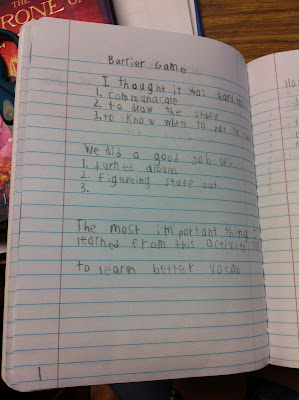 RONE
OF
Barrier Game
I thought it was hard to:
1. communacate
2. to draw the stuff
3. to know where to put
We did a good job of:
1. turned around
2. figureing stuff out
3.
The most important thing I
learned from this activity
to learn better vocab
1
Ho